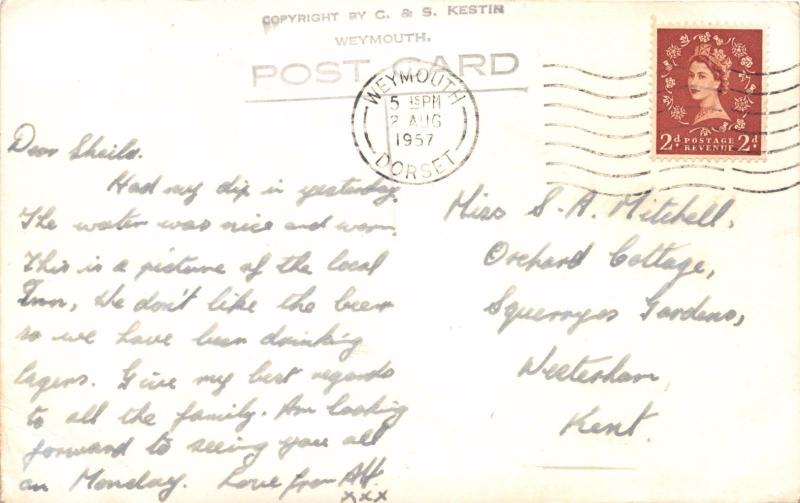 COPYRIGHT BY C. & S. KESTIN
WEYMOUTH.
POST CARD
WEYMOUTH
5 15 PM
2 AUG
1957
DORSET
2d POSTAGE 2d
REVENUE
Dear Sheila.
Had my dip in yesterday
The water was nice and warm.
This is a picture of the local
Inn, We don't like the beer
so we have been drinking
lagers. Give my best regards
to all the family. Am looking
forward to seeing you all
on Monday. Love from Alf.
xxx
Miss S. A. Mitchell,
Orchard Cottage,
Squerryes Gardens,
Westerham,
Kent.